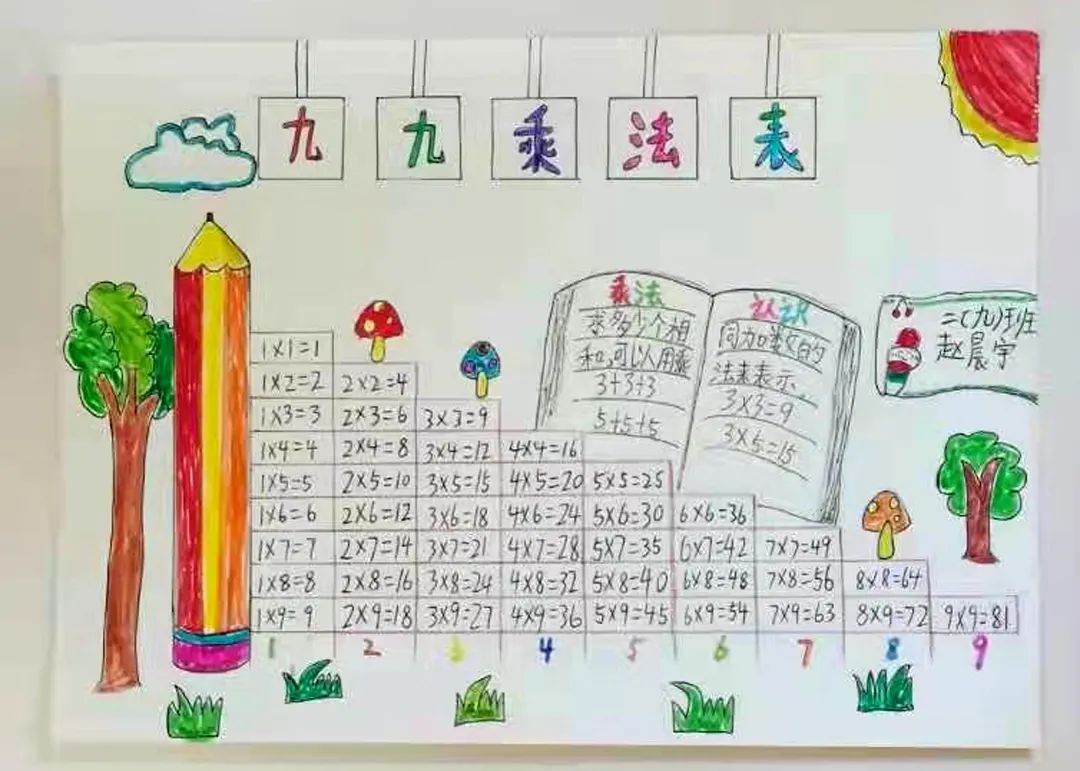 九九乘法表
乘法
求多少个相
和,可以用乘
3+3+3
5+5+5
认识
同加数的
法来表示.
3×3=9
3×5=15
二(九)班
赵晨宇
1×1=1
1×2=2 2×2=4
1×3=3 2×3=6 3×3=9
1×4=4 2×4=8 3×4=12 4×4=16
1×5=5 2×5=10 3×5=15 4×5=20 5×5=25
1×6=6 2×6=12 3×6=18 4×6=24 5×6=30 6×6=36
1×7=7 2×7=14 3×7=21 4×7=28 5×7=35 6×7=42 7×7=49
1×8=8 2×8=16 3×8=24 4×8=32 5×8=40 6×8=48 7×8=56 8×8=64
1×9=9 2×9=18 3×9=27 4×9=36 5×9=45 6×9=54 7×9=63 8×9=72 9×9=81
1 2 3 4 5 6 7 8 9